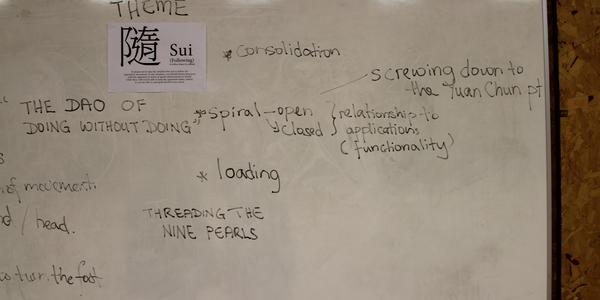 THEME
隨
Sui
(Following)
* consolidation
screwing down to
the Yuan Chun pt
"THE DAO OF
DOING WITHOUT DOING"
* spiral - open
closed
relationship to
applications
(functionality)
* loading
of movement.
/ head.
THREADING THE
NINE PEARLS
turn, the foot